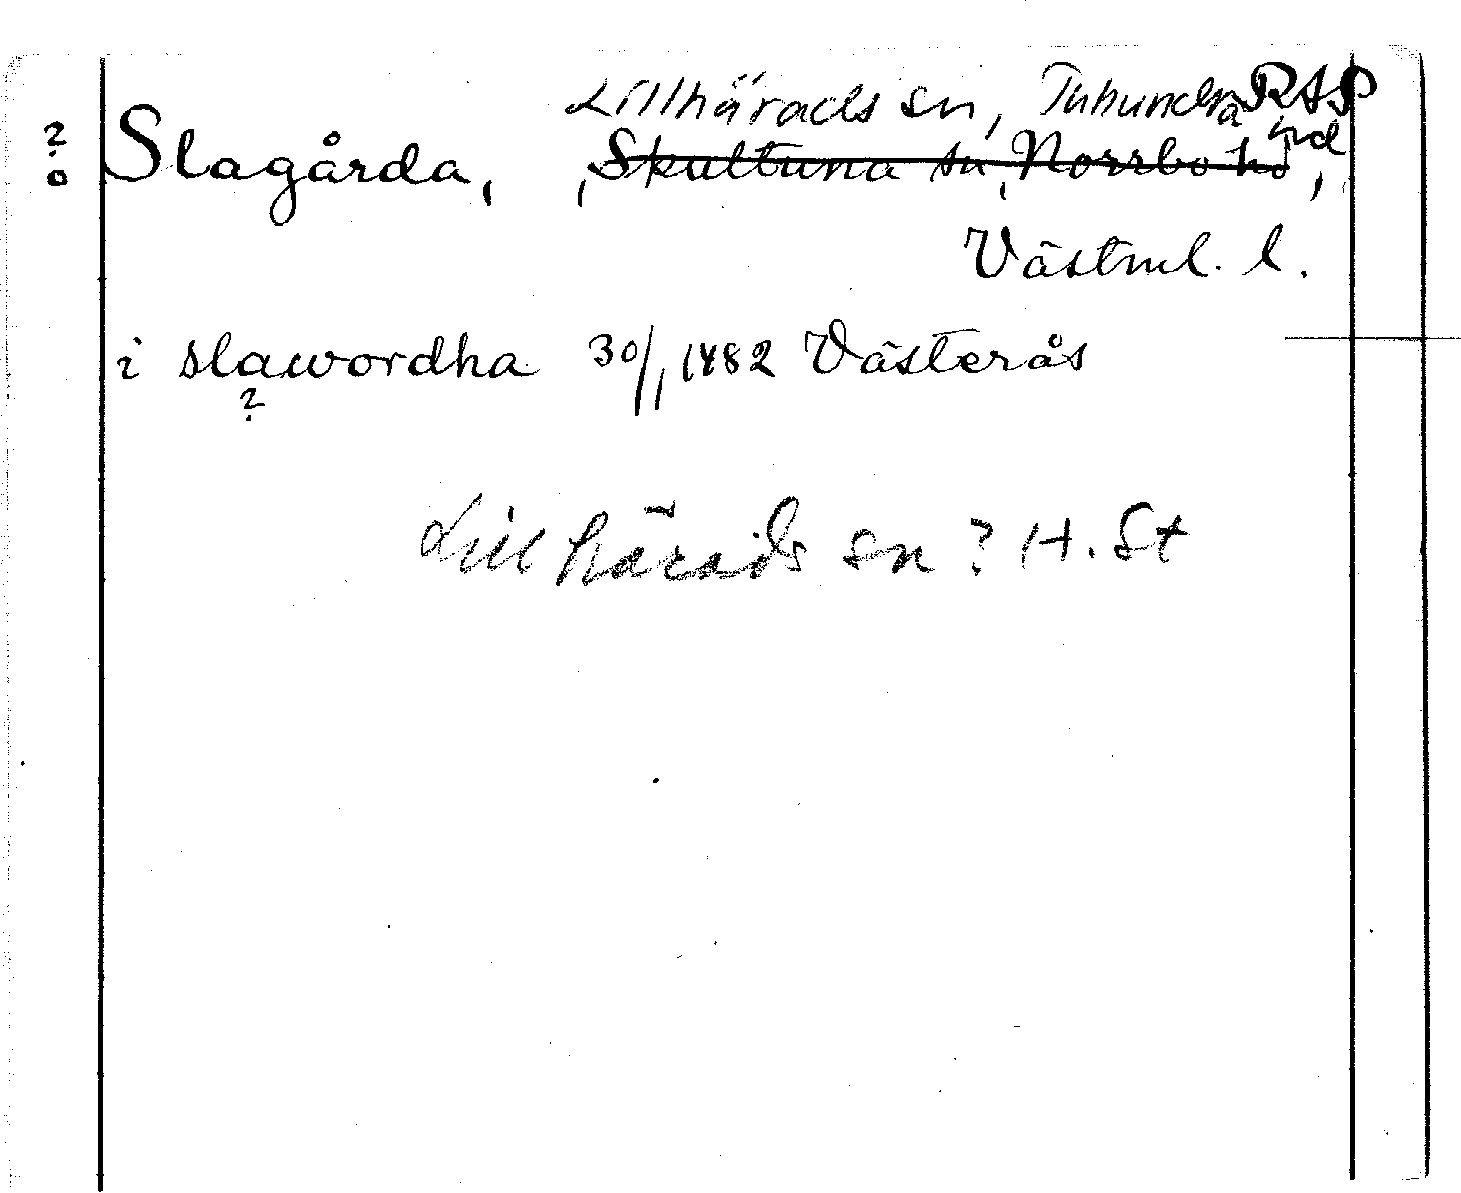 Lillhärads sn, Tuhundra hd RAP
? o Slagårda, , Skultuna sn, Norrbo hd,
Västml. l.
i slawordha 30/1 1482 Västerås
?
Lillhärads sn? H. St